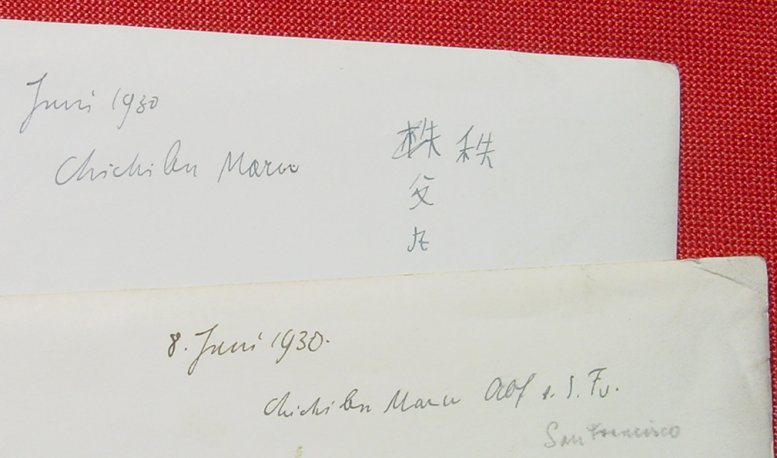 Juni 1930
Chichibu Maru
秩 秩
父
丸
8. Juni 1930.
Chichibu Maru
San Francisco